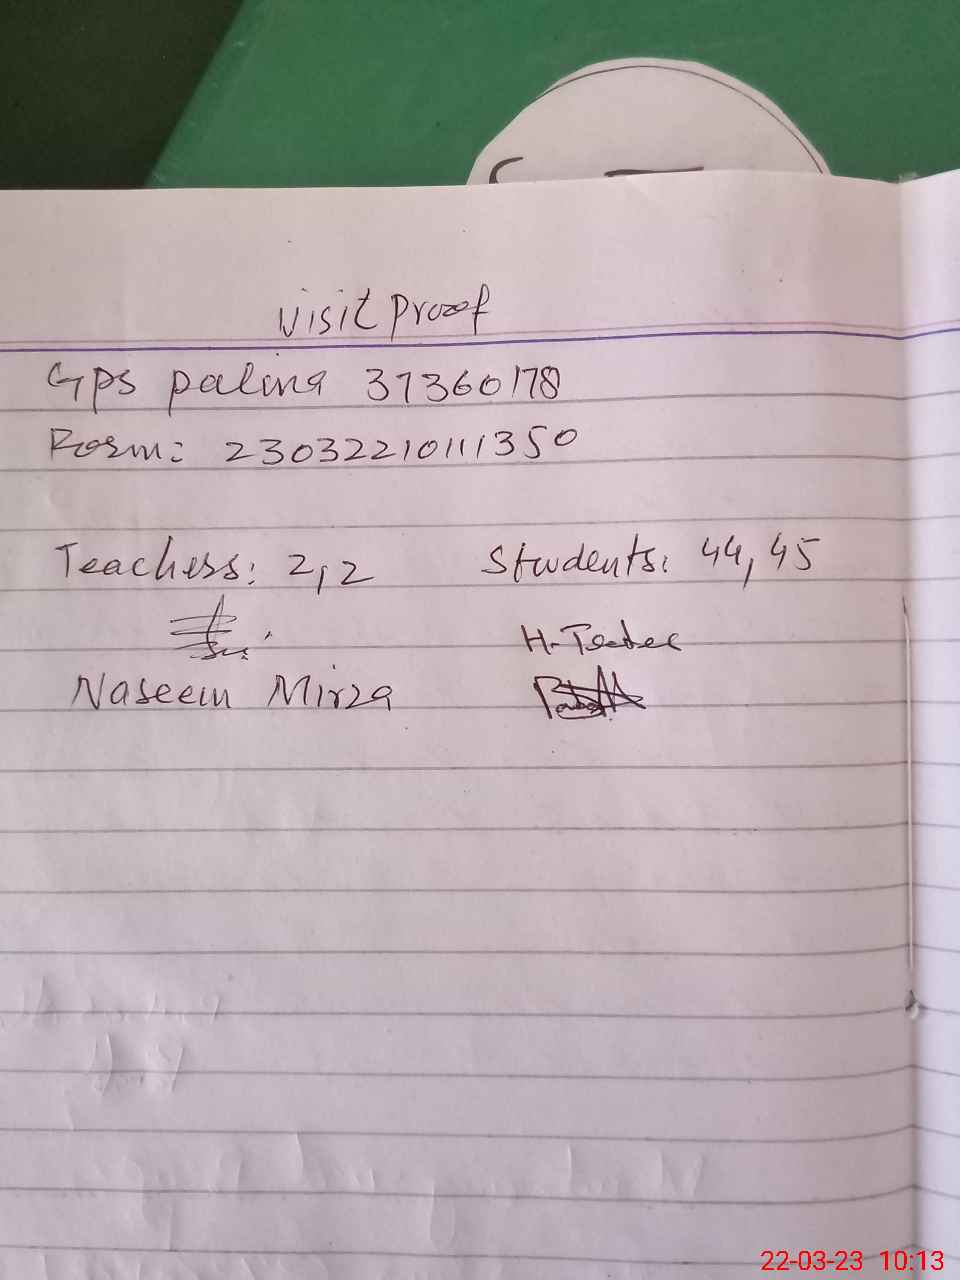 Visit Proof
GPS palina 37360178
Form: 23032210111350
Teachers: 2,2 Students: 44,45
H-Teacher
Naseem Mirza
22-03-23 10:13